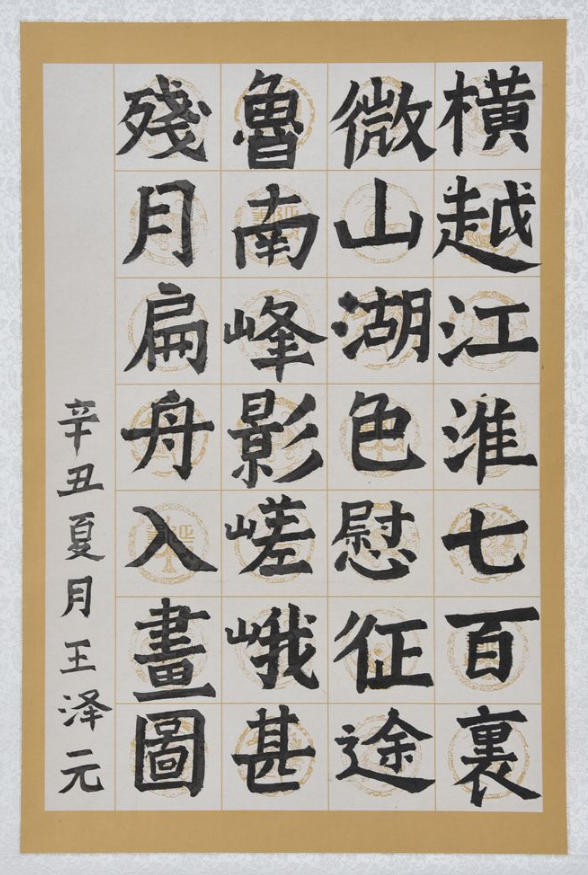 橫越江淮七百裏
微山湖色慰征途
魯南峰影嵯峨甚
殘月扁舟入畫圖
辛丑夏月王泽元